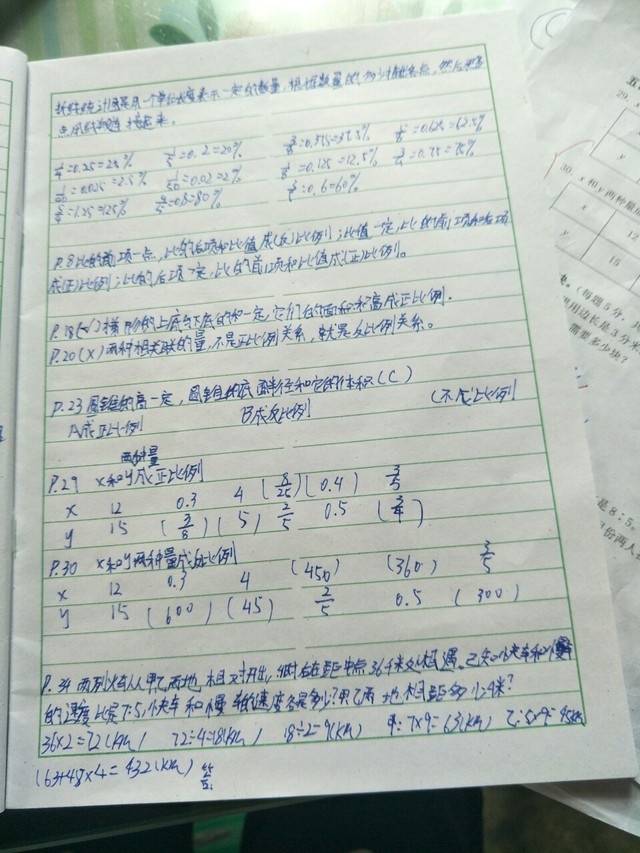 折线统计图是用一个单位长度表示一定的数量,根据数量的多少描出各点,然后把各
点用线段连接起来。
1/4=0.25=25% 1/5=0.2=20% 3/8=0.375=37.5% 5/8=0.625=62.5%
1/40=0.025=2.5% 1/50=0.02=2% 1/8=0.125=12.5% 3/4=0.75=75%
5/4=1.25=125% 4/5=0.8=80% 3/5=0.6=60%
P.8 比的前项一定,比的后项和比值成(反)比例;比值一定,比的前项和后项
成(正)比例;比的后项一定,比的前项和比值成(正)比例。
P.18(√)梯形的上底与下底的和一定,它们的面积和高成正比例.
P.20(×)两种相关联的量,不是正比例关系,就是反比例关系。
P.23 圆锥的高一定,圆锥的底面半径和它的体积(C)
A成正比例 B成反比例 (不成比例
两种量
P.29 x和y成正比例
x 12 0.3 4 (8/25) (0.4) 3/5
y 15 (3/8) (5) 2/5 0.5 (3/4)
P.30 x和y两种量成反比例
x 12 0.3 4 (450) (360) 3/5
y 15 (600) (45) 2/5 0.5 (300)
P.34 两列火车从甲乙两地相对开出,4时后在距中点36千米处相遇。已知快车和慢车
的速度比是7:5,快车和慢车的速度各是多少?甲乙两地相距多少千米?
36×2=72(km) 72÷4=18(km) 18÷2=9(km) 甲:7×9=63(km) 乙:5×9=45km
(63+45×4=432(km)
29.
y
30. x和y两种量成
x 12
y 15
(每题5分,
用边长是3分米
需要多少块?
是8:5。